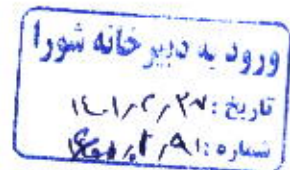 ورود به دبیرخانه شورا
تاریخ: ۱۴۰۱/۲/۲۷
شماره: